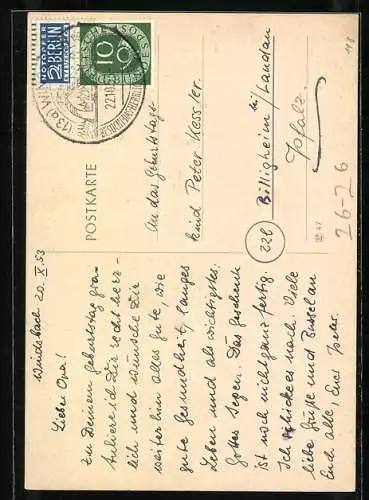 Windsbach 20. X. 53
Lieber Opa!
Zu Deinem Geburtstag gra-
tuliere ich Dir recht herz-
lich und wünsche Dir
weiterhin alles Gute, wie
gute Gesundheit, langes
Leben und als wichtigstes:
Gottes Segen. Das Geschenk
ist noch nicht ganz fertig.
Ich schicke es nach. Viele
liebe Grüße und Bussel an
Euch alle, Euer
POSTKARTE
NOTOPFER
2 BERLIN
STEUERMARKE
DEUTSCHE BUNDESPOST
10
(13a)
22.10.
An das Geburtstags-
kind Peter Kessler.
(22b) Billigheim bei/Landau
Pfalz.
118
26-26